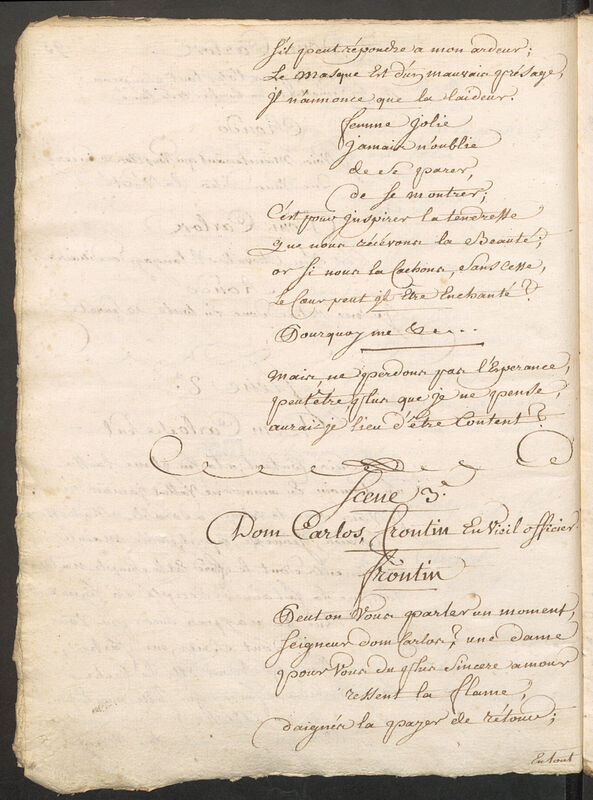 s'il peut répondre a mon ardeur;
Le Masque Est d'un mauvais présage,
jl n'annonce que la laideur.
femme jolie
jamais n'oublie
de se parer,
de se montrer;
C'est pour jnspirer la tendresse
Que nous récévons la Beauté;
or si nous la Cachons, sans Cesse,
Le Cœur peut jl Être Enchanté?
Pourquoy me &c...
Mais, ne perdons pas l'Esperance,
peut être plus que je ne pense,
aurai-je lieu d'être Content?
Scene 3.e
Dom Carlos, frontin En Vieil officier.
frontin
Peut on Vous parler un moment,
seigneur dom Carlos? une dame
pour Vous du plus sincere amour
ressent la flame;
daignés la payer de rétour;
En tout